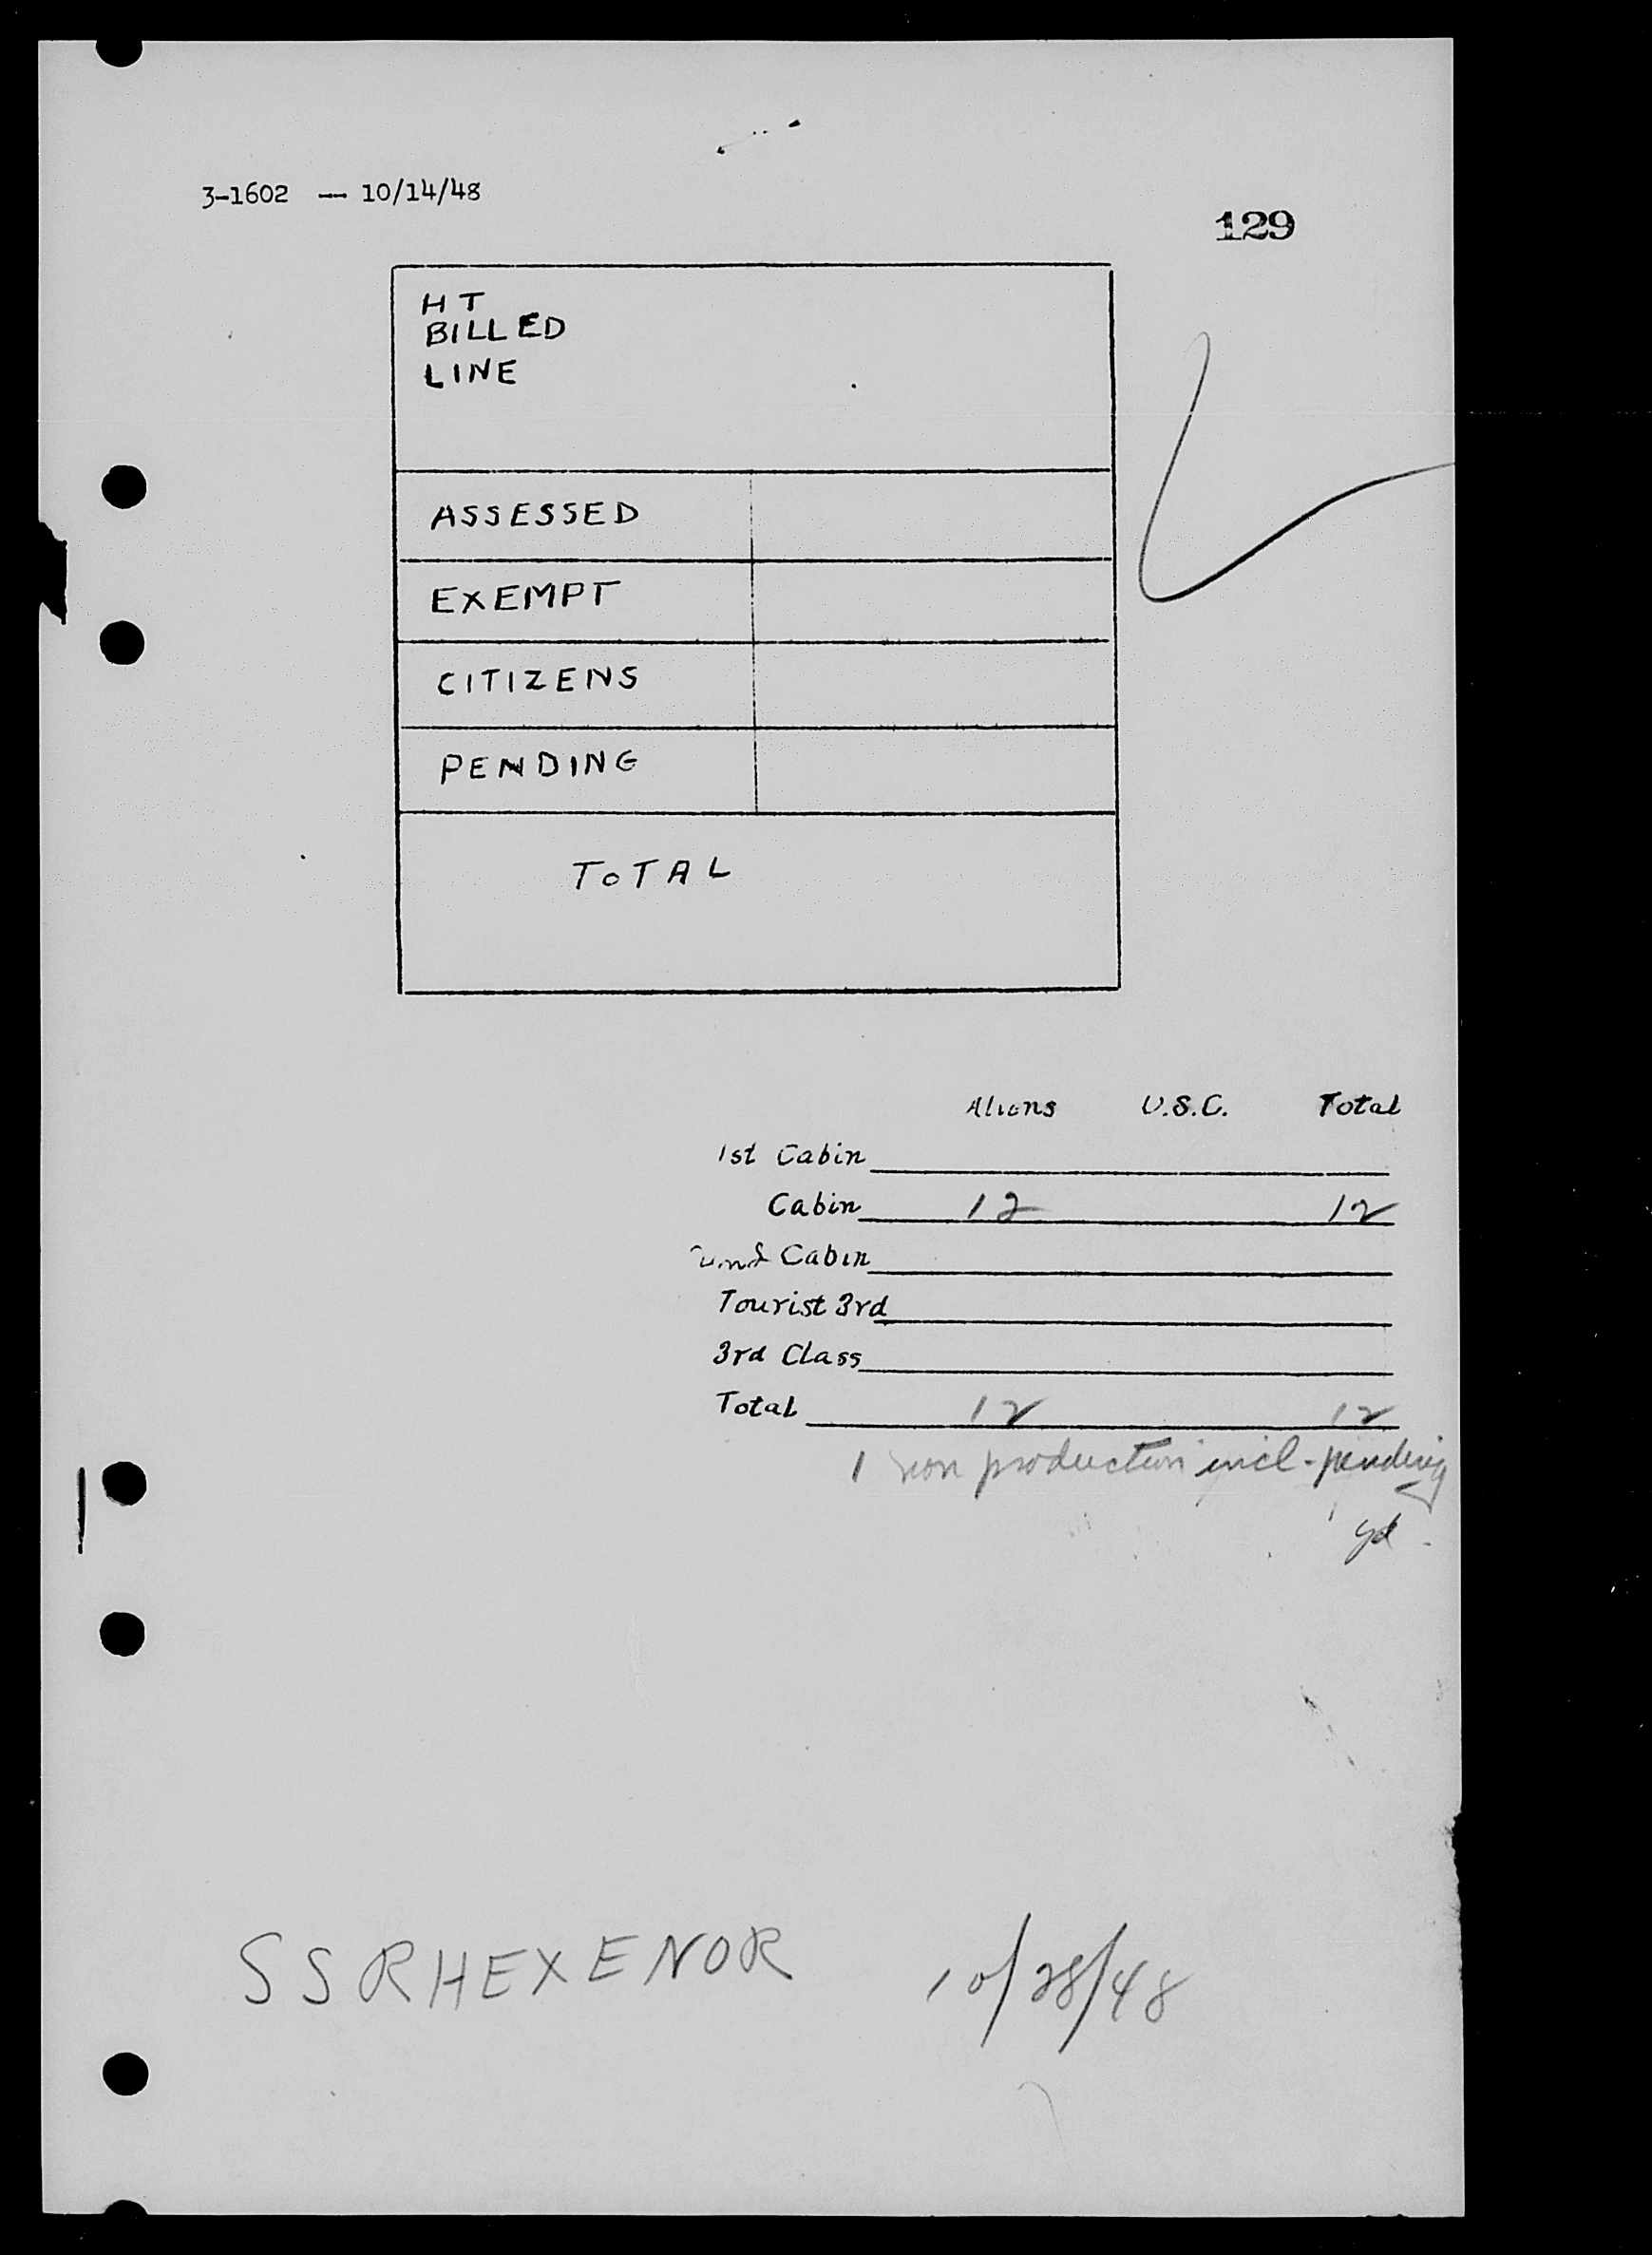 3-1602 — 10/14/48
129
HT
BILLED
LINE
ASSESSED
EXEMPT
CITIZENS
PENDING
TOTAL
Aliens U.S.C. Total
1st Cabin
Cabin 12 12
2nd Cabin
Tourist 3rd
3rd Class
Total 12 12
1 non production incl - pending
SS RHEXENOR 10/28/48